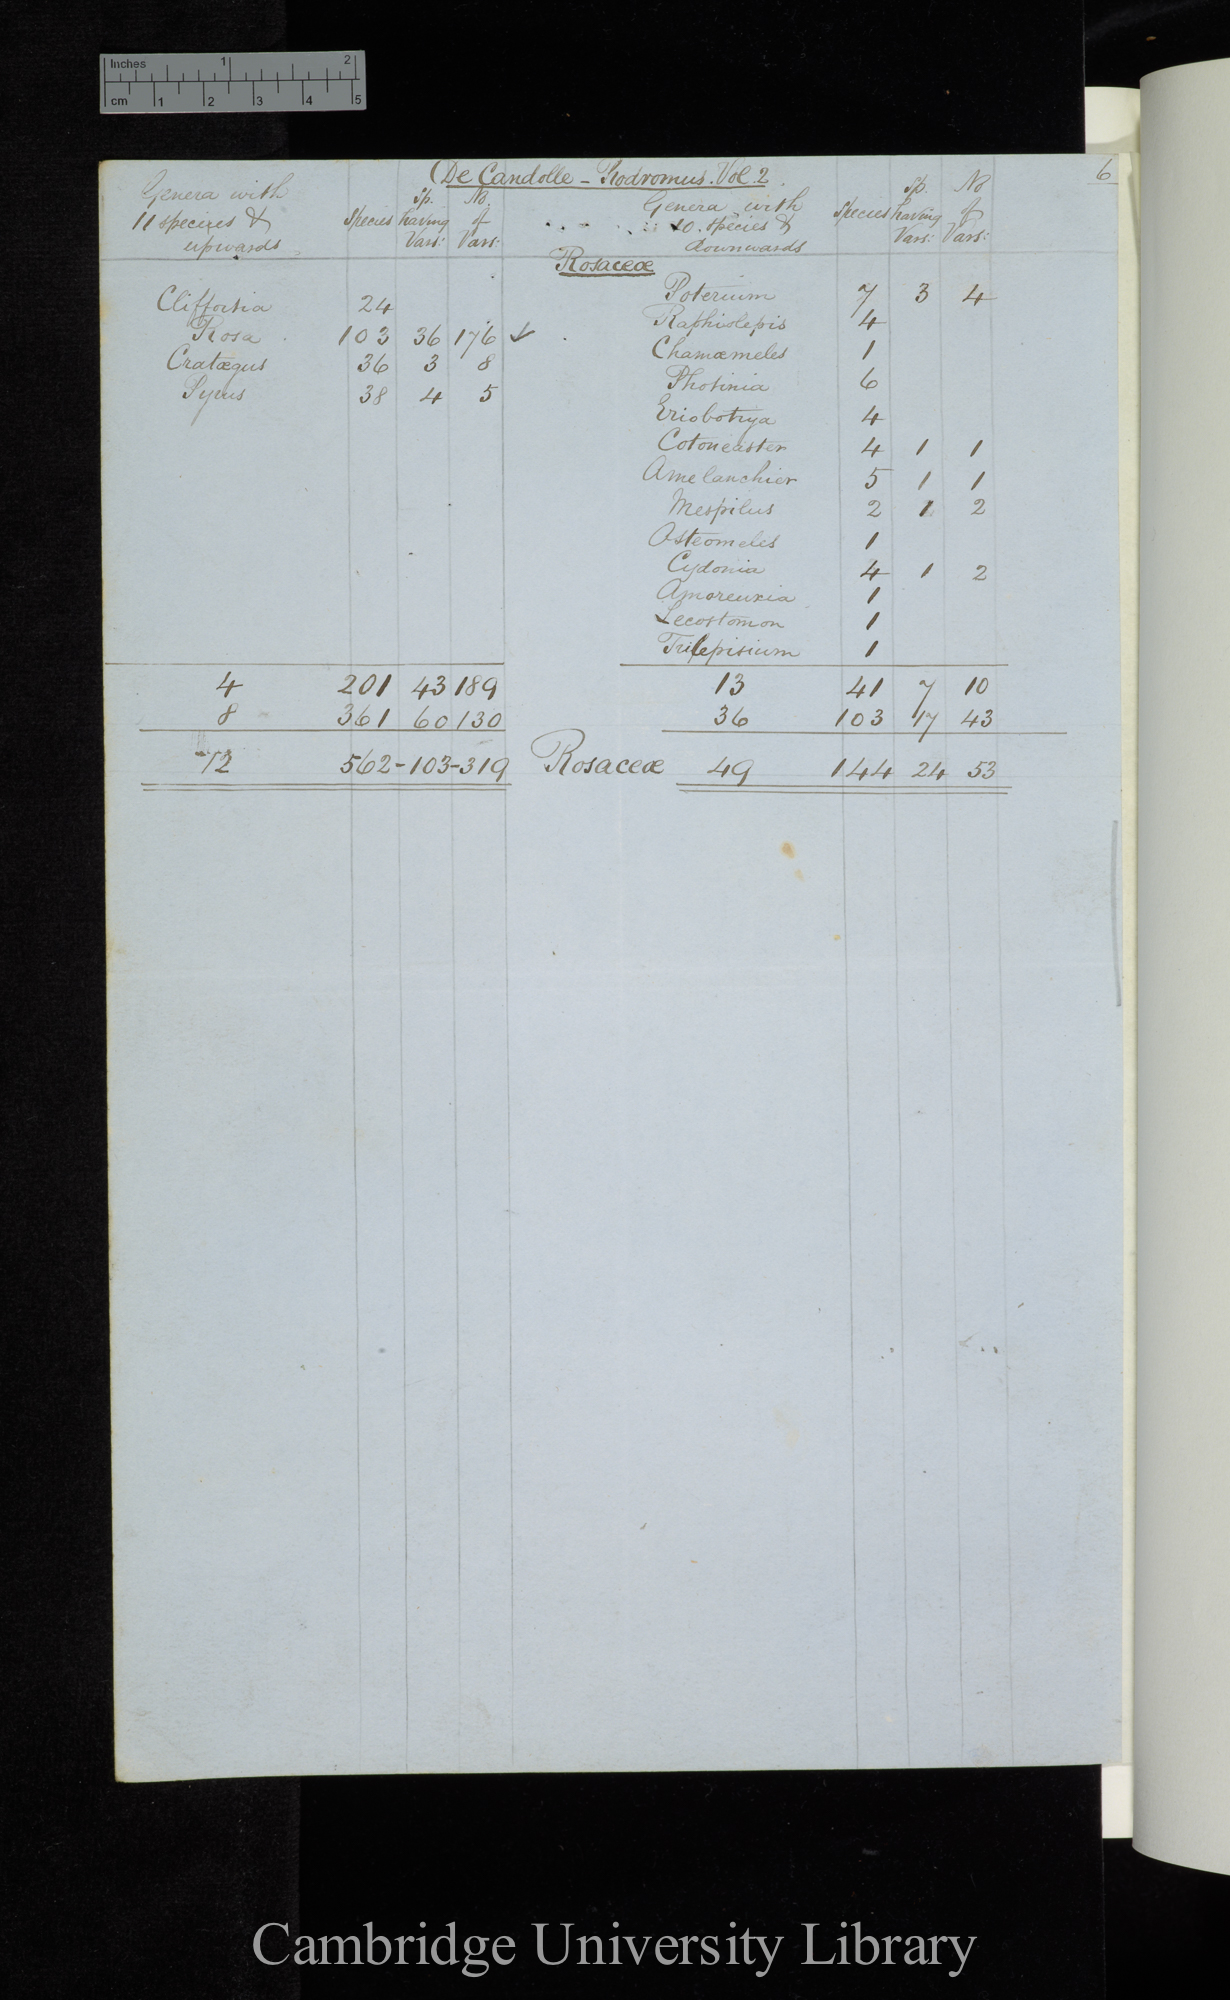 Inches 1 2
cm 1 2 3 4 5
(De Candolle - Prodromus. Vol. 2 6
Genera with 11 species & upwards Species Sp. having Vars: No. of Vars: Genera with 10. species & downwards Species Sp. having Vars: No of Vars:
Rosaceæ
Cliffortia 24 Poterium 7 3 4
Rosa 103 36 176 Raphiolepis 4
Cratægus 36 3 8 Chamæmeles 1
Pyrus 38 4 5 Photinia 6
Eriobotrya 4
Cotoneaster 4 1 1
Amelanchier 5 1 1
Mespilus 2 1 2
Osteomeles 1
Cydonia 4 1 2
Amoreuxia 1
Lecostomon 1
Trilepisium 1
4 201 43 189 13 41 7 10
8 361 60 130 36 103 17 43
12 562-103-319 Rosaceæ 49 144 24 53
Cambridge University Library